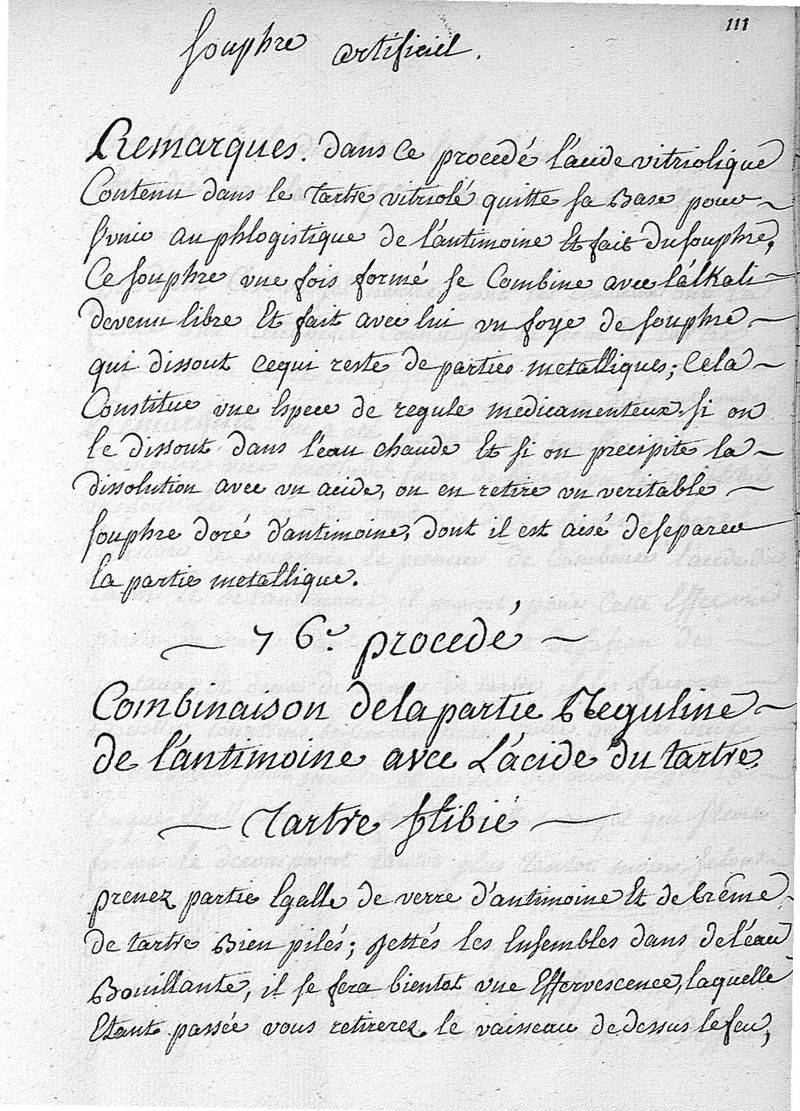 111
souphre artificiel.
Remarques. dans ce procedé l'acide vitriolique
Contenu dans le tartre vitriolé quitte sa Base pour
s'unir au phlogistique de l'antimoine Et fait du souphre,
Ce souphre une fois formé se Combine avec l'alkali
devenu libre Et fait avec lui un foye de souphre
qui dissout cequi reste de parties metalliques; Cela
Constitue une Espece de regule medicamenteux. si on
le dissout dans l'eau chaude Et si on precipite la
dissolution avec un acide, on en retire un veritable
souphre doré d'antimoine, dont il est aisé deseparer
la partie metallique.
76.e procedé
Combinaison delapartie Reguline
de l'antimoine avec L'acide du tartre
Tartre stibié
prenez partie Egalle de verre d'antimoine Et de Crême
de tartre Bien pilés; jettés les Ensembles dans del'eau
Bouillante, il se fera bientot une Effervescence, laquelle
Etant passée vous retirerez le vaisseau dedessus lefeu,